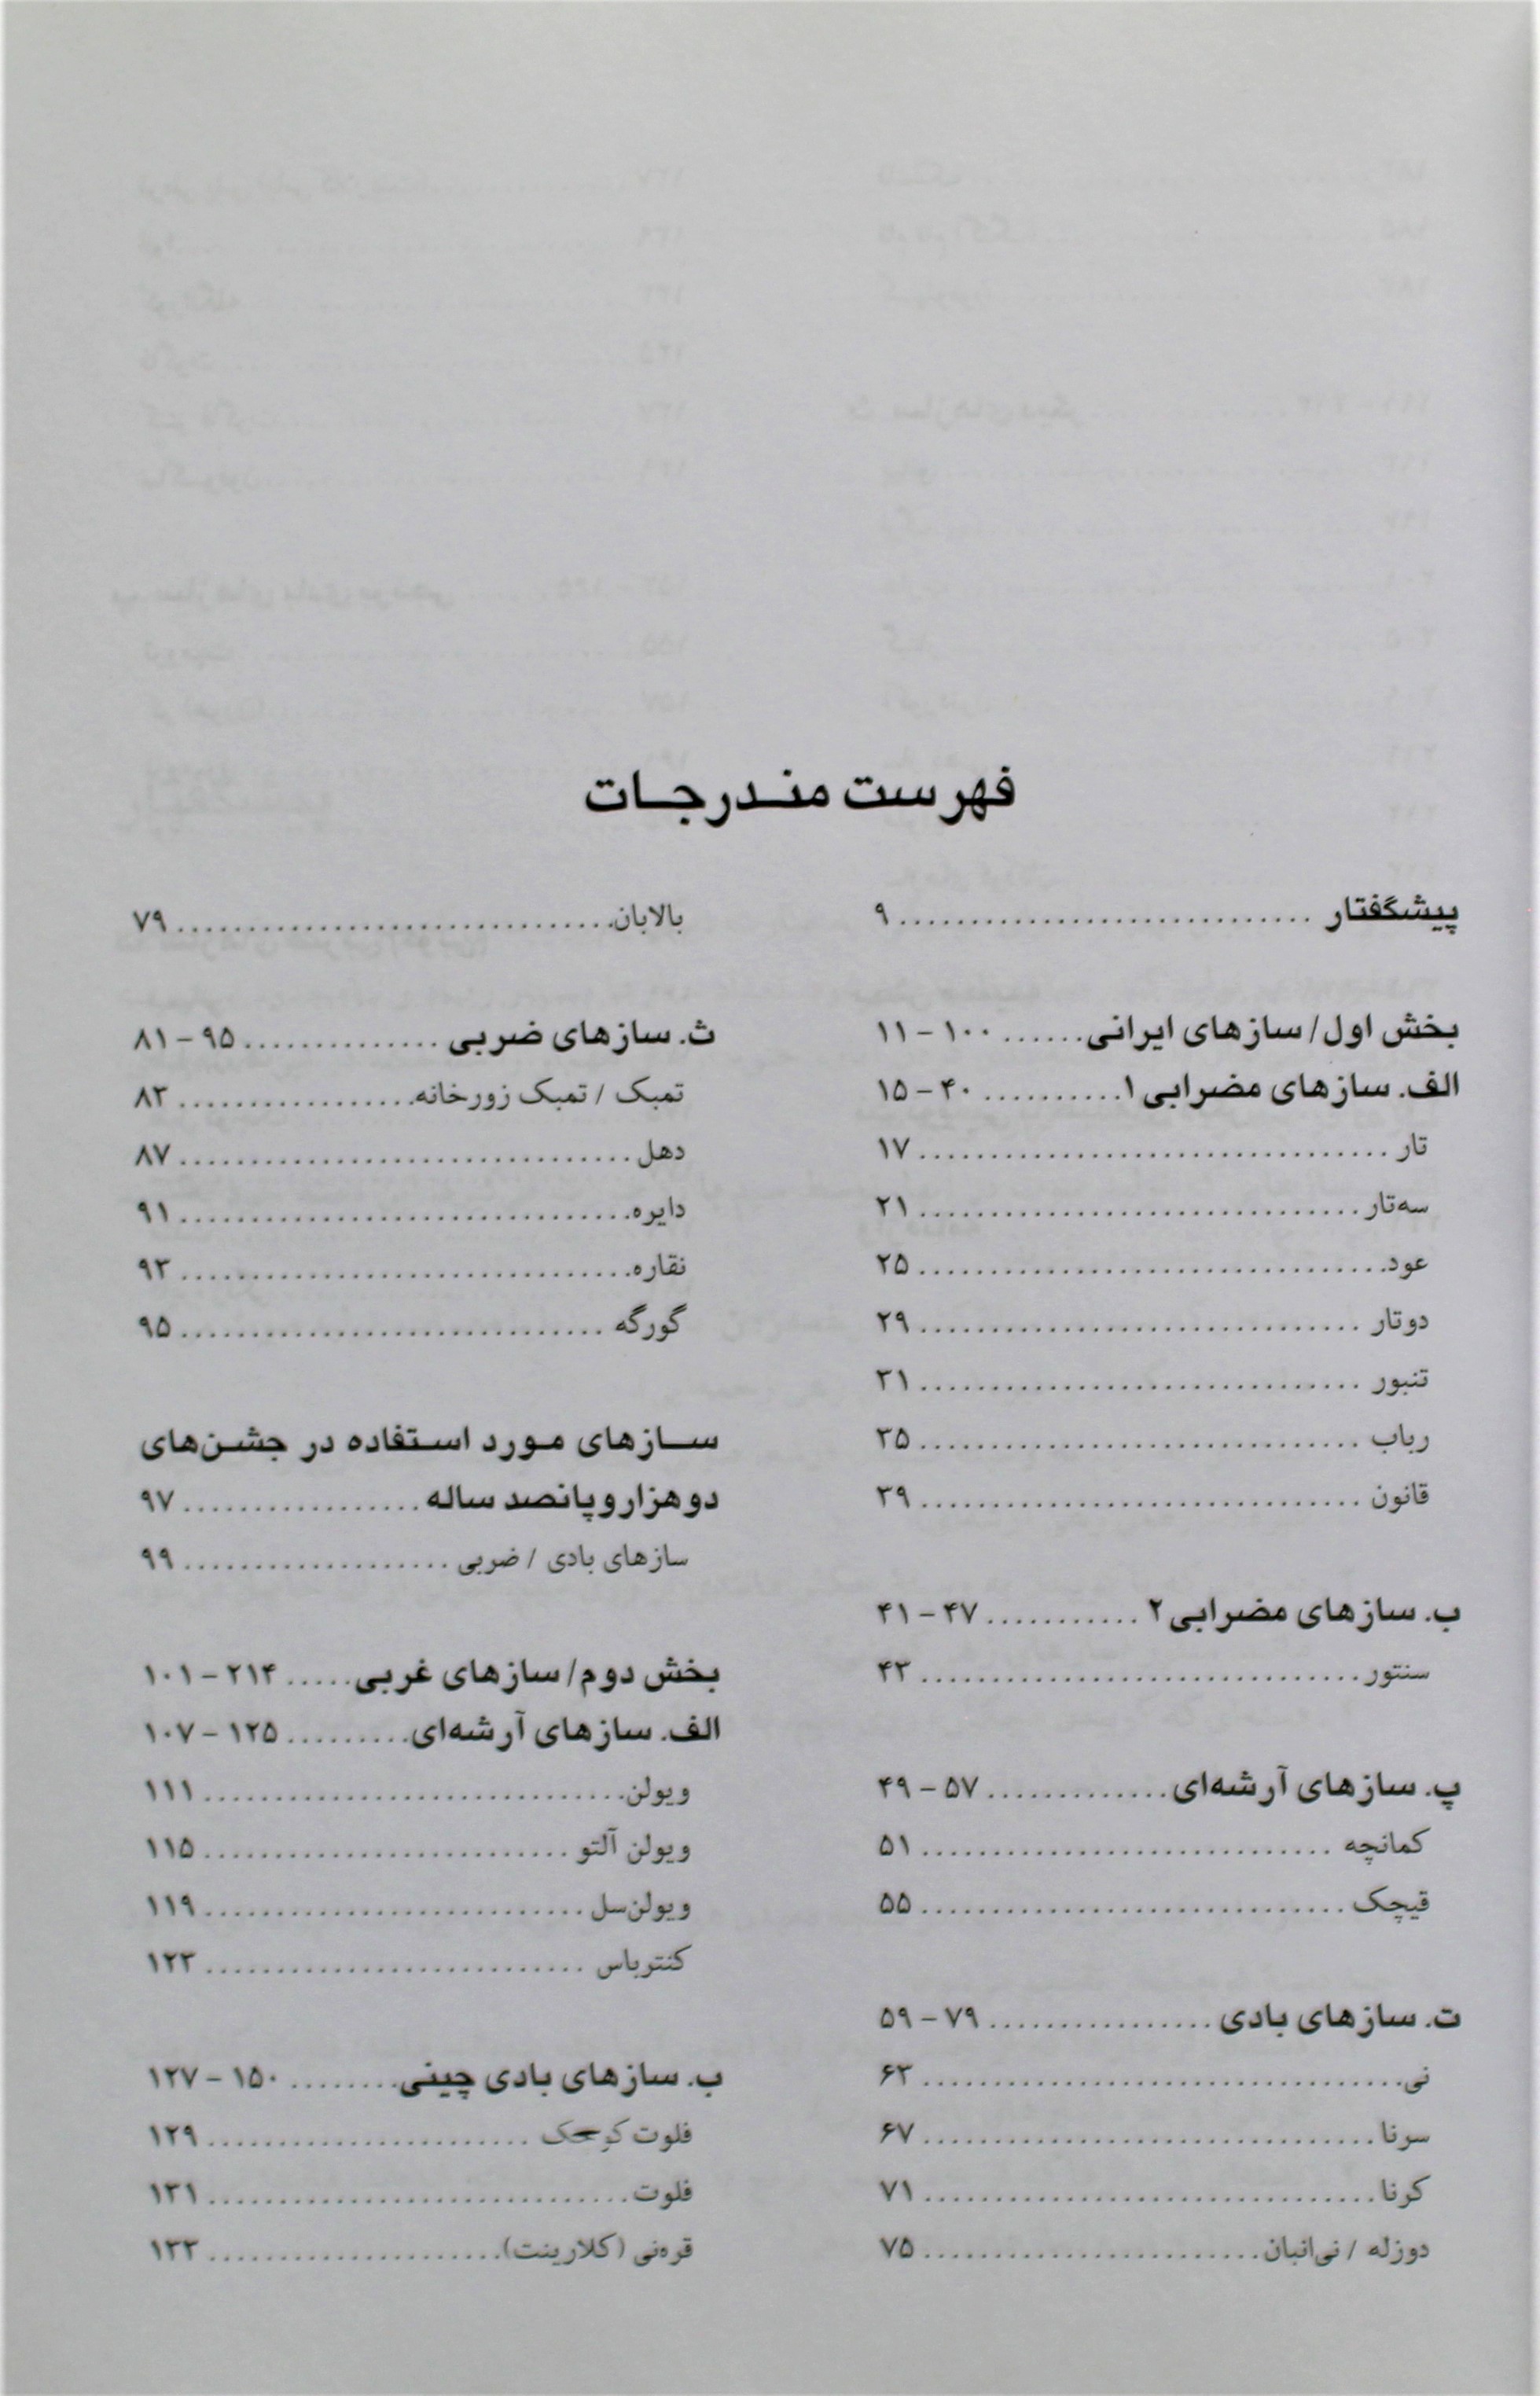 فهرست مندرجات
پیشگفتار ۹
بخش اول/ سازهای ایرانی ۱۰۰ – ۱۱
الف. سازهای مضرابی ۱ ۴۰ – ۱۵
تار ۱۷
سه‌تار ۲۱
عود ۲۵
دوتار ۲۹
تنبور ۳۱
رباب ۳۵
قانون ۳۹
ب. سازهای مضرابی ۲ ۴۷ – ۴۱
سنتور ۴۳
پ. سازهای آرشه‌ای ۵۷ – ۴۹
کمانچه ۵۱
قیچک ۵۵
ت. سازهای بادی ۷۹ – ۵۹
نی ۶۳
سرنا ۶۷
کرنا ۷۱
دوزله / نی‌انبان ۷۵
بالابان ۷۹
ث. سازهای ضربی ۹۵ – ۸۱
تمبک / تمبک زورخانه ۸۳
دهل ۸۷
دایره ۹۱
نقاره ۹۳
گورگه ۹۵
سازهای مورد استفاده در جشن‌های
دوهزاروپانصد ساله ۹۷
سازهای بادی / ضربی ۹۹
بخش دوم/ سازهای غربی ۲۱۴ – ۱۰۱
الف. سازهای آرشه‌ای ۱۲۵ – ۱۰۷
ویولن ۱۱۱
ویولن آلتو ۱۱۵
ویولن‌سل ۱۱۹
کنترباس ۱۲۳
ب. سازهای بادی چینی ۱۵۰ – ۱۲۷
فلوت ۱۲۹
فلوت ۱۳۱
قره‌نی (کلارینت) ۱۳۳